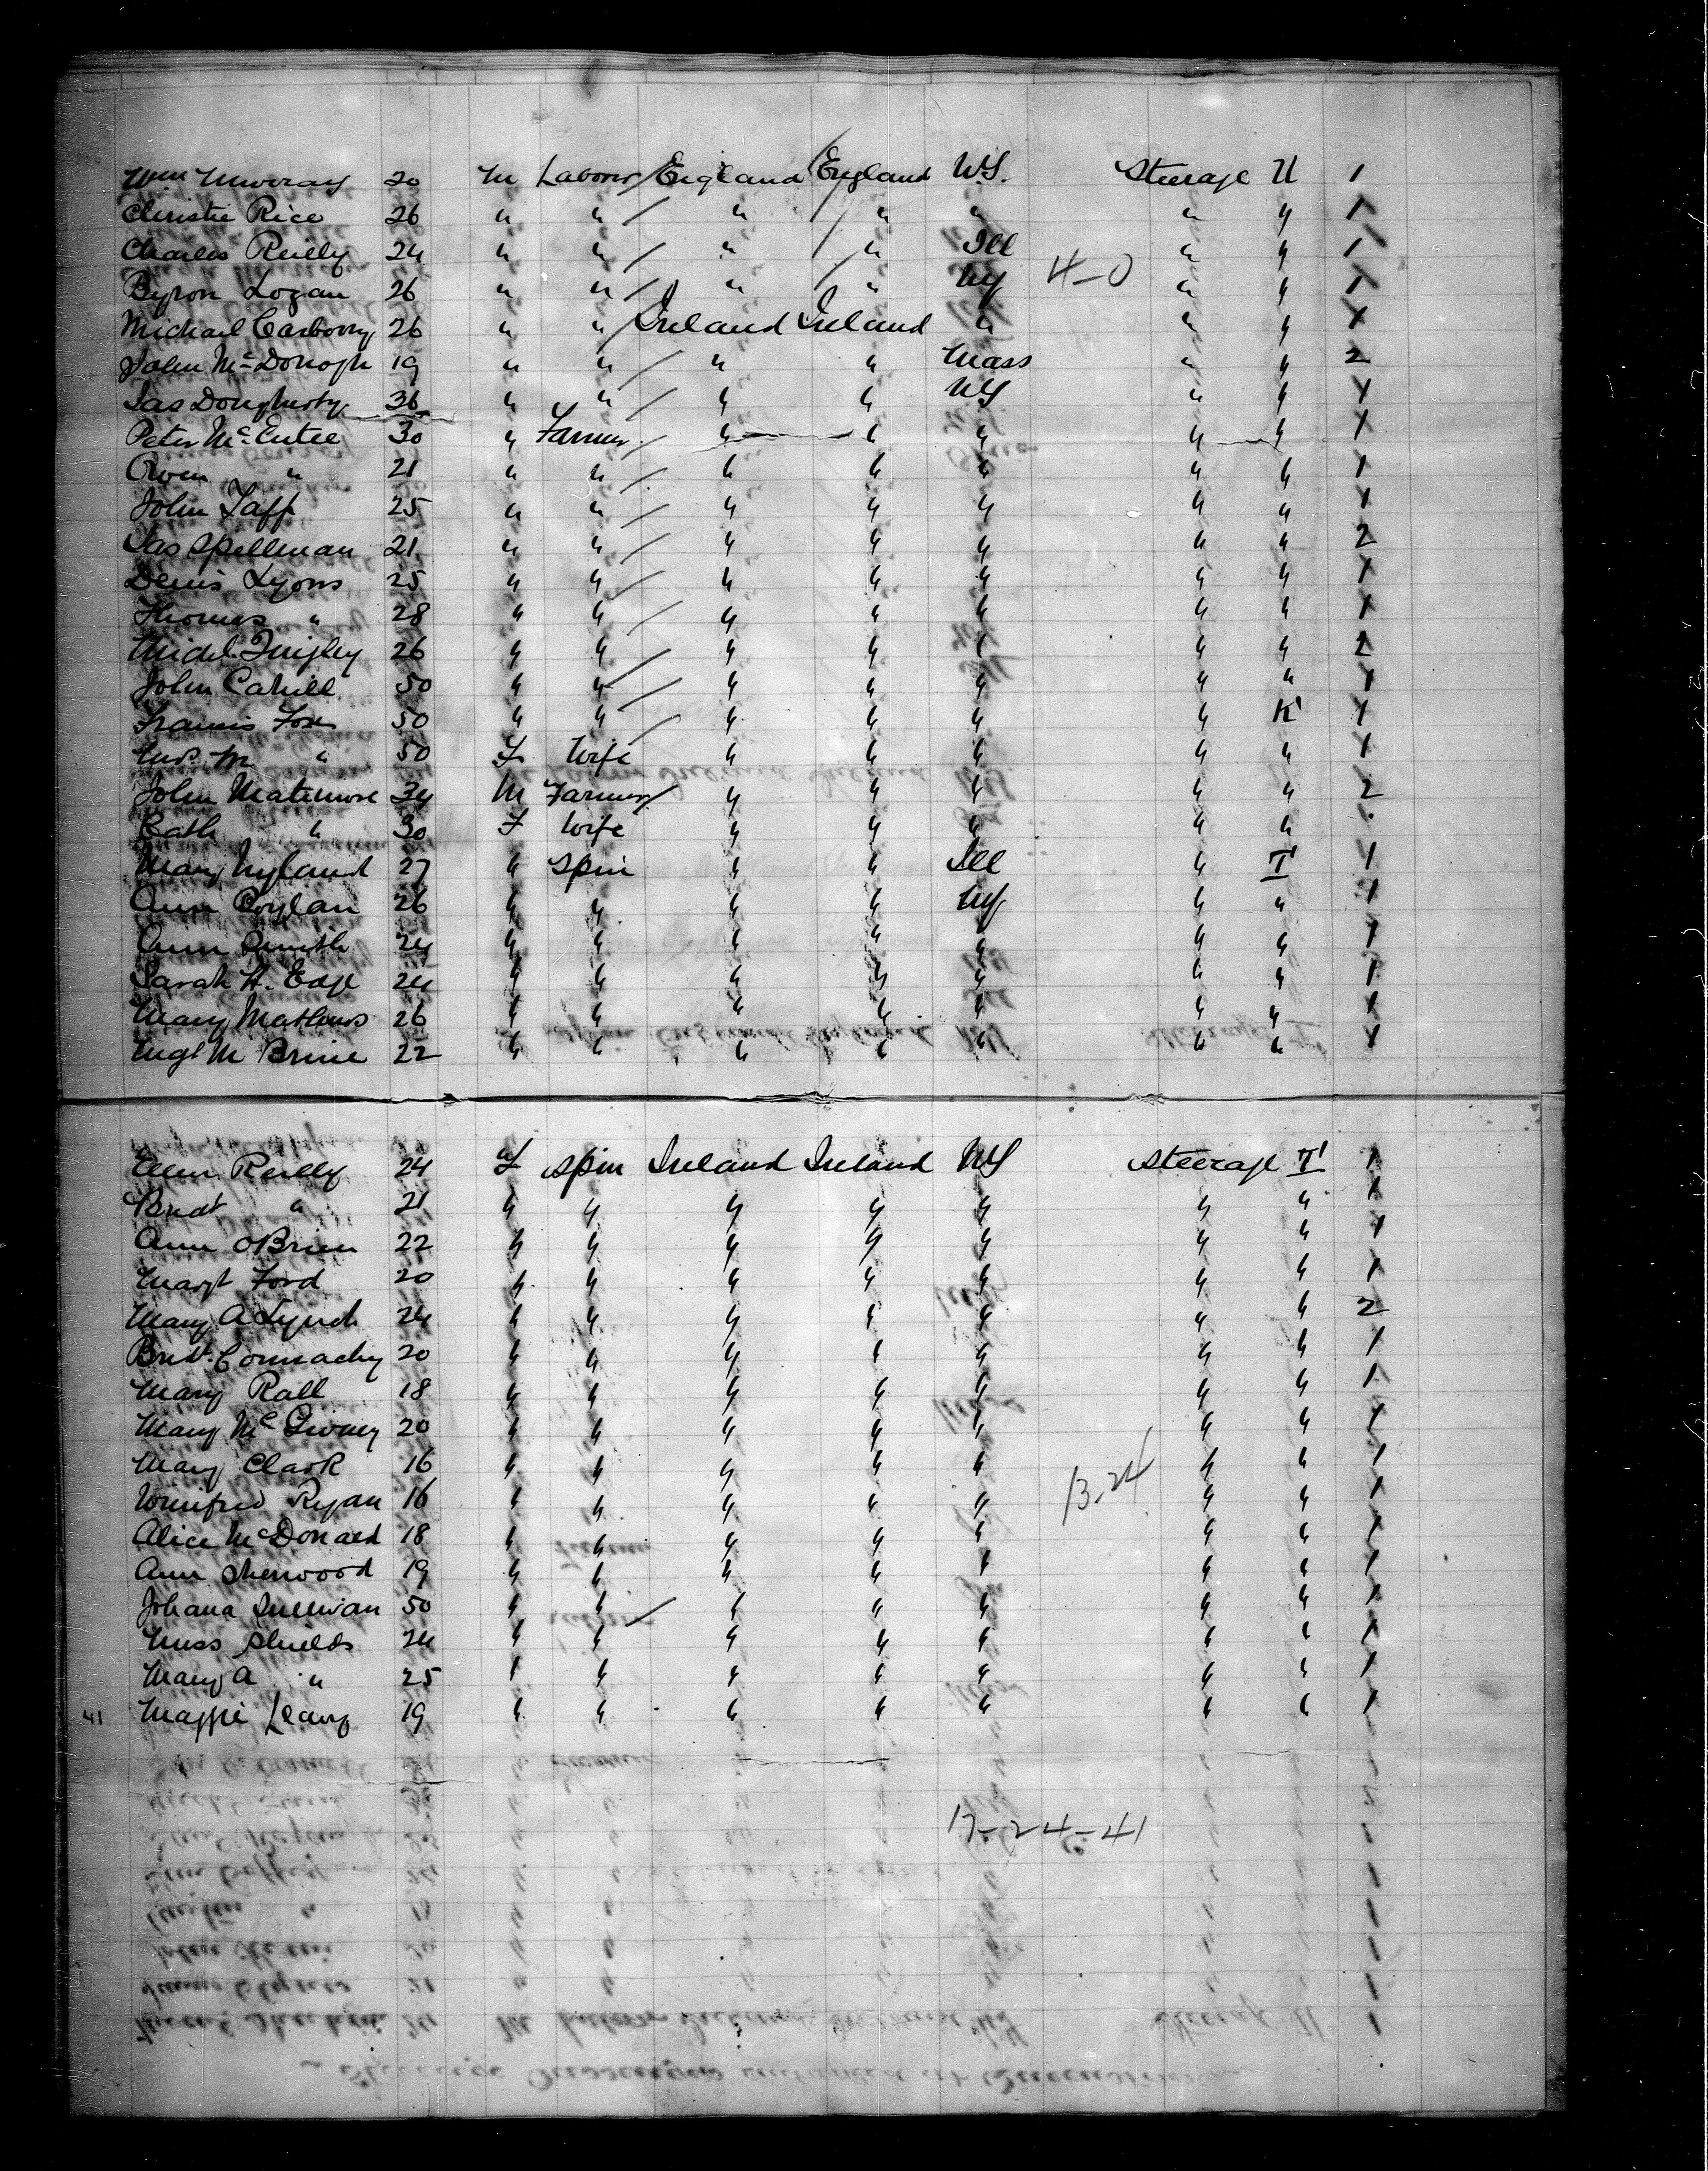 Wm Murray 20 M Laborer England England NY. Steerage U 1
Christie Rice 26 " " " " " " " 1
Charles Reilly 24 " " " " Ill " " 1
Byron Logan 26 " " " " NY 4-0 " " 1
Michael 26 " " Ireland Ireland " " " 1
John McDonogh 19 " " " " Mass " " 2
Jas Dougherty 36 " " " " NY " " 1
Peter McEntee 30 " Farmer " " " " " 1
Owen " 21 " " " " " " " 1
John Taff 25 " " " " " " " 1
Jas Spellman 21 " " " " " " " 2
Denis Lyons 25 " " " " " " " 1
Thomas " 28 " " " " " " " 1
26 " " " " " " " 2
John Cahill 50 " " " " " " " 1
Francis Fox 50 " " " " " " K 1
Mrs. M " 50 F Wife " " " " " 1
John Matimore 34 M Farmer " " " " " 2
Cath " 30 F Wife " " " " "
Mary Nyland 27 " Spin " " Ill " T 1
Ann Boylan 26 " " " " NY " " 1
Ann Smith 24 " " " " " " " 1
Sarah H. Edge 24 " " " " " " " 1
Mary Mathews 26 " " " " " " " 1
Mgt M Brine 22 " " " " " " " 1
Ellen Reilly 24 F Spin Ireland Ireland NY Steerage T 1
Bridt " 21 " " " " " " " 1
Ann OBrien 22 " " " " " " " 1
Margt Ford 20 " " " " " " " 1
Mary A Lynch 24 " " " " " " " 2
Bridt. Connachy 20 " " " " " " " 1
Mary Rall 18 " " " " " " " 1
Mary McGivney 20 " " " " " " " 1
Mary Clark 16 " " " " " " " 1
Winifred Ryan 16 " " " " " 13-24 " " 1
Alice McDonald 18 " " " " " " " 1
Ann Sherwood 19 " " " " " " " 1
Johana Sullivan 50 " " " " " " " 1
Miss Shields 24 " " " " " " " 1
Mary A " 25 " " " " " " " 1
41 Maggie Leary 19 " " " " " " " 1
17-24-41